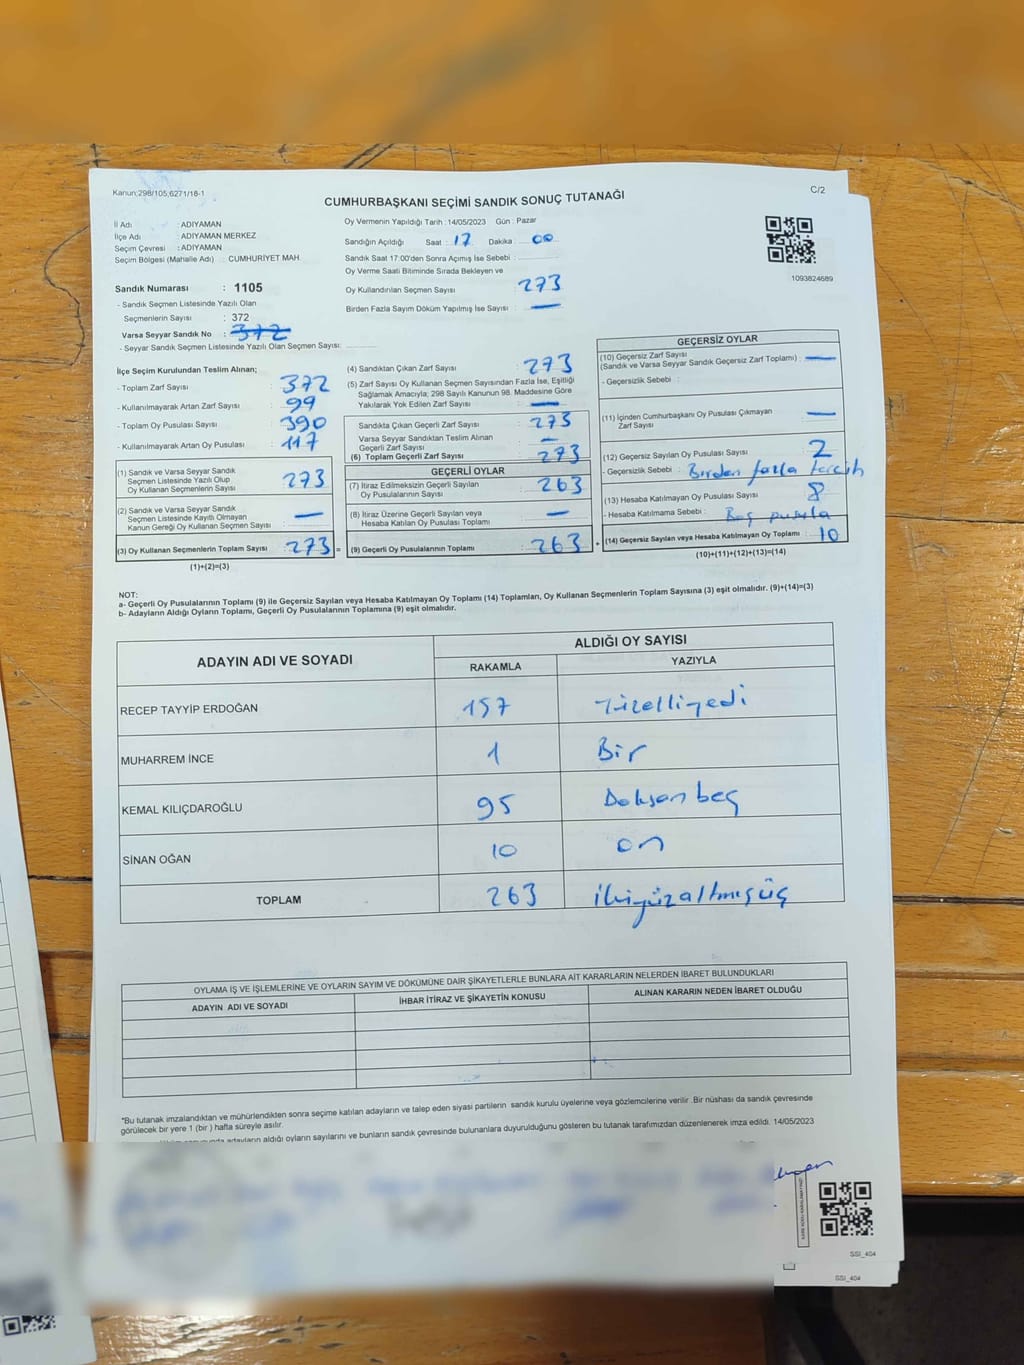 Kanun:298/105;6271/18-1
C/2
CUMHURBAŞKANI SEÇİMİ SANDIK SONUÇ TUTANAĞI
İl Adı : ADIYAMAN
İlçe Adı : ADIYAMAN MERKEZ
Seçim Çevresi : ADIYAMAN
Seçim Bölgesi (Mahalle Adı) : CUMHURİYET MAH.
Sandık Numarası : 1105
- Sandık Seçmen Listesinde Yazılı Olan
Seçmenlerin Sayısı : 372
Varsa Seyyar Sandık No :
- Seyyar Sandık Seçmen Listesinde Yazılı Olan Seçmen Sayısı:
Oy Vermenin Yapıldığı Tarih : 14/05/2023 Gün : Pazar
Sandığın Açıldığı Saat : 17 Dakika : 00
Sandık Saat 17:00'den Sonra Açımış İse Sebebi :
Oy Verme Saati Bitiminde Sırada Bekleyen ve
Oy Kullandırılan Seçmen Sayısı : 273
Birden Fazla Sayım Döküm Yapılmış İse Sayısı : —
1093824689
İlçe Seçim Kurulundan Teslim Alınan;
- Toplam Zarf Sayısı : 372
- Kullanılmayarak Artan Zarf Sayısı : 99
- Toplam Oy Pusulası Sayısı : 390
- Kullanılmayarak Artan Oy Pusulası : 117
(1) Sandık ve Varsa Seyyar Sandık
Seçmen Listesinde Yazılı Olup
Oy Kullanan Seçmenlerin Sayısı : 273
(2) Sandık ve Varsa Seyyar Sandık
Seçmen Listesinde Kayıtlı Olmayan
Kanun Gereği Oy Kullanan Seçmen Sayısı : —
(3) Oy Kullanan Seçmenlerin Toplam Sayısı : 273 =
(1)+(2)=(3)
(4) Sandıktan Çıkan Zarf Sayısı : 273
(5) Zarf Sayısı Oy Kullanan Seçmen Sayısından Fazla İse, Eşitliği
Sağlamak Amacıyla; 298 Sayılı Kanunun 98. Maddesine Göre
Yakılarak Yok Edilen Zarf Sayısı : —
Sandıkta Çıkan Geçerli Zarf Sayısı : 273
Varsa Seyyar Sandıktan Teslim Alınan
Geçerli Zarf Sayısı : —
(6) Toplam Geçerli Zarf Sayısı : 273
GEÇERLİ OYLAR
(7) İtiraz Edilmeksizin Geçerli Sayılan
Oy Pusulalarının Sayısı : 263
(8) İtiraz Üzerine Geçerli Sayılan veya
Hesaba Katılan Oy Pusulası Toplamı : —
(9) Geçerli Oy Pusulalarının Toplamı : 263 +
GEÇERSİZ OYLAR
(10) Geçersiz Zarf Sayısı
(Sandık ve Varsa Seyyar Sandık Geçersiz Zarf Toplamı) : —
- Geçersizlik Sebebi :
(11) İçinden Cumhurbaşkanı Oy Pusulası Çıkmayan
Zarf Sayısı : —
(12) Geçersiz Sayılan Oy Pusulası Sayısı : 2
- Geçersizlik Sebebi : Birden fazla tercih
(13) Hesaba Katılmayan Oy Pusulası Sayısı : 8
- Hesaba Katılmama Sebebi : Boş pusula
(14) Geçersiz Sayılan veya Hesaba Katılmayan Oy Toplamı : 10
(10)+(11)+(12)+(13)=(14)
NOT:
a- Geçerli Oy Pusulalarının Toplamı (9) ile Geçersiz Sayılan veya Hesaba Katılmayan Oy Toplamı (14) Toplamları, Oy Kullanan Seçmenlerin Toplam Sayısına (3) eşit olmalıdır. (9)+(14)=(3)
b- Adayların Aldığı Oyların Toplamı, Geçerli Oy Pusulalarının Toplamına (9) eşit olmalıdır.
ADAYIN ADI VE SOYADI ALDIĞI OY SAYISI
RAKAMLA YAZIYLA
RECEP TAYYİP ERDOĞAN 157 Yüzelliyedi
MUHARREM İNCE 1 Bir
KEMAL KILIÇDAROĞLU 95 Doksan beş
SİNAN OĞAN 10 on
TOPLAM 263 ikiyüzaltmışüç
OYLAMA İŞ VE İŞLEMLERİNE VE OYLARIN SAYIM VE DÖKÜMÜNE DAİR ŞİKAYETLERLE BUNLARA AİT KARARLARIN NELERDEN İBARET BULUNDUKLARI
ADAYIN ADI VE SOYADI İHBAR İTİRAZ VE ŞİKAYETİN KONUSU ALINAN KARARIN NEDEN İBARET OLDUĞU
*Bu tutanak imzalandıktan ve mühürlendikten sonra seçime katılan adayların ve talep eden siyasi partilerin sandık kurulu üyelerine veya gözlemcilerine verilir .Bir nüshası da sandık çevresinde
görülecek bir yere 1 (bir ) hafta süreyle asılır.
adayların aldığı oyların sayılarını ve bunların sandık çevresinde bulunanlara duyurulduğunu gösteren bu tutanak tarafımızdan düzenlenerek imza edildi. 14/05/2023
SSI_404
SSI_404